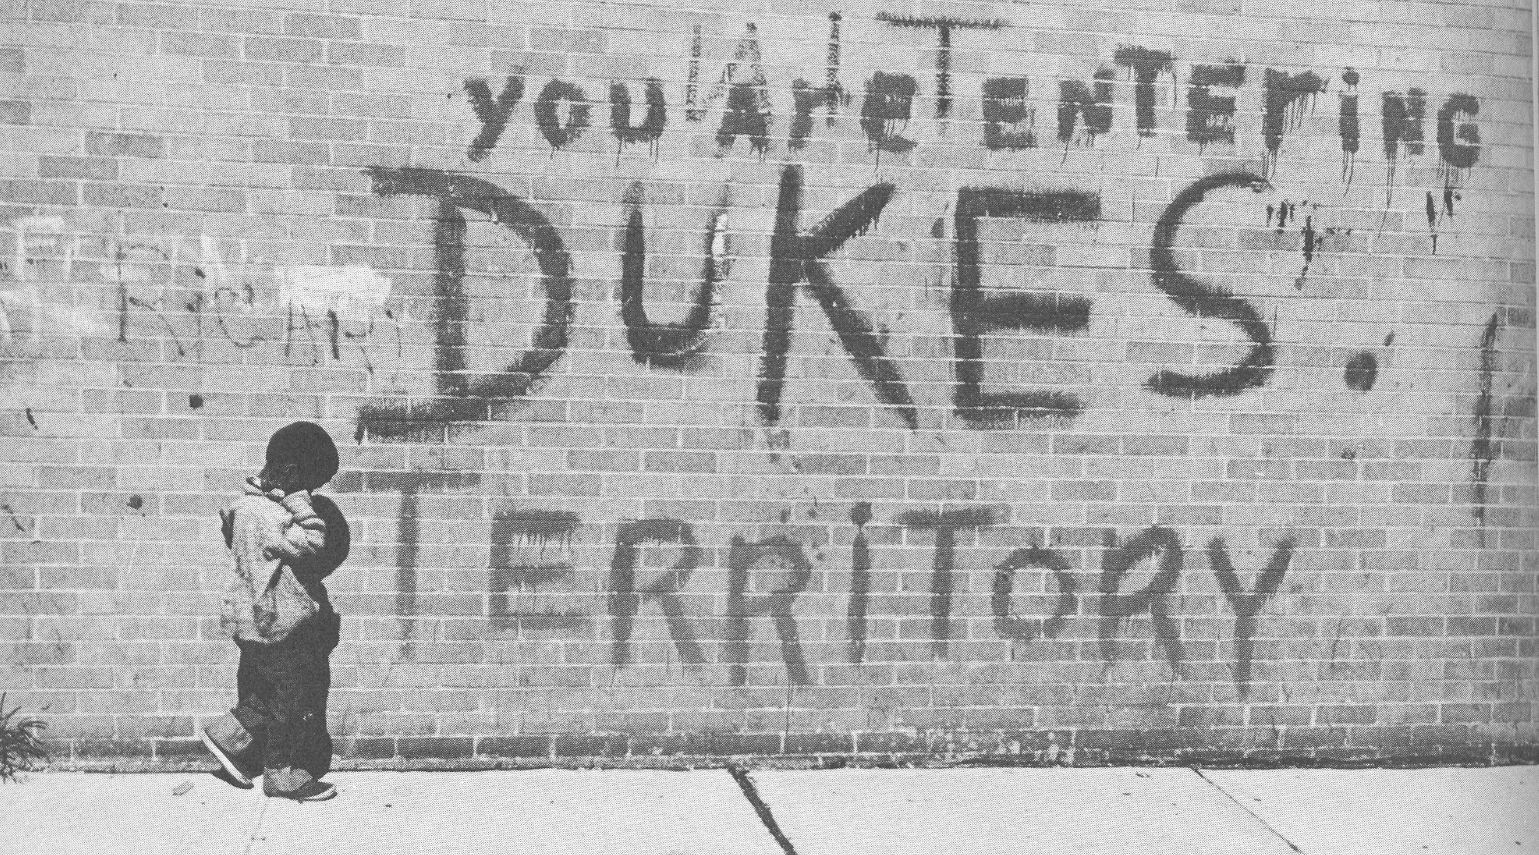 WAiT
yOU Are ENTEriNG
DUKES.
TERRiTORY